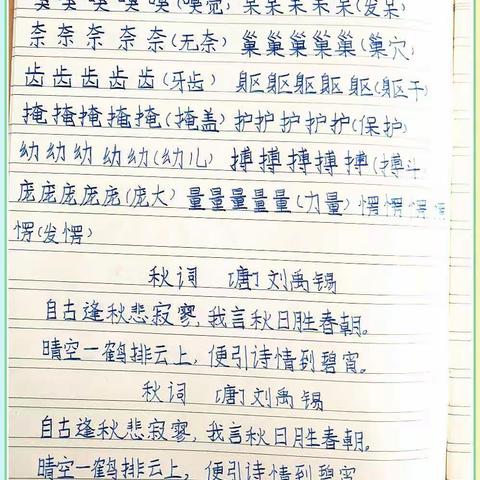 嗅嗅嗅嗅嗅(嗅觉) 呆呆呆呆呆(发呆)
奈奈奈奈奈(无奈) 巢巢巢巢巢(巢穴)
齿齿齿齿齿(牙齿) 躯躯躯躯躯(躯干)
掩掩掩掩掩(掩盖) 护护护护护(保护)
幼幼幼幼幼(幼儿) 搏搏搏搏搏(搏斗)
庞庞庞庞庞(庞大) 量量量量量(力量) 愣愣愣愣
愣(发愣)
秋词 [唐]刘禹锡
自古逢秋悲寂寥,我言秋日胜春朝。
晴空一鹤排云上,便引诗情到碧宵。
秋词 [唐]刘禹锡
自古逢秋悲寂寥,我言秋日胜春朝。
晴空一鹤排云上,便引诗情到碧宵